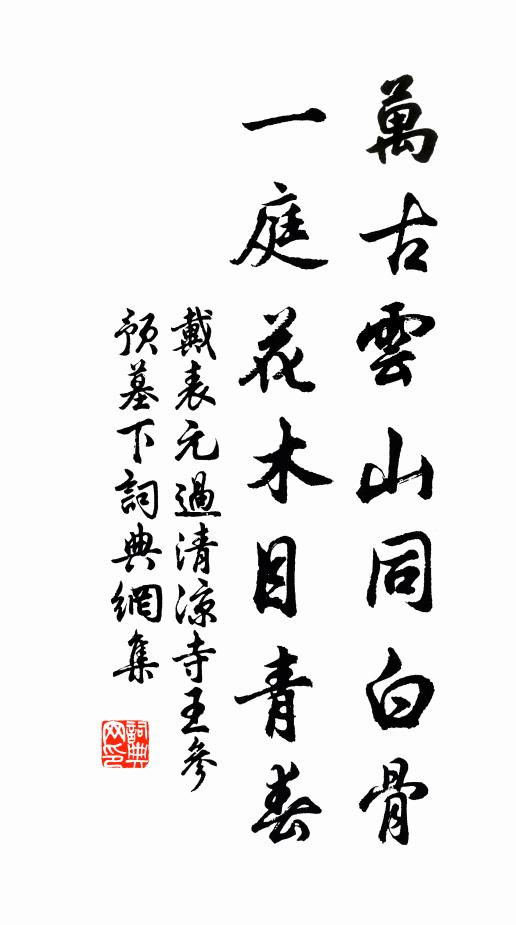 萬古雲山同白骨
一庭花木目青春
戴表元過清涼寺王參
預墓下詞典網集
詞典網印